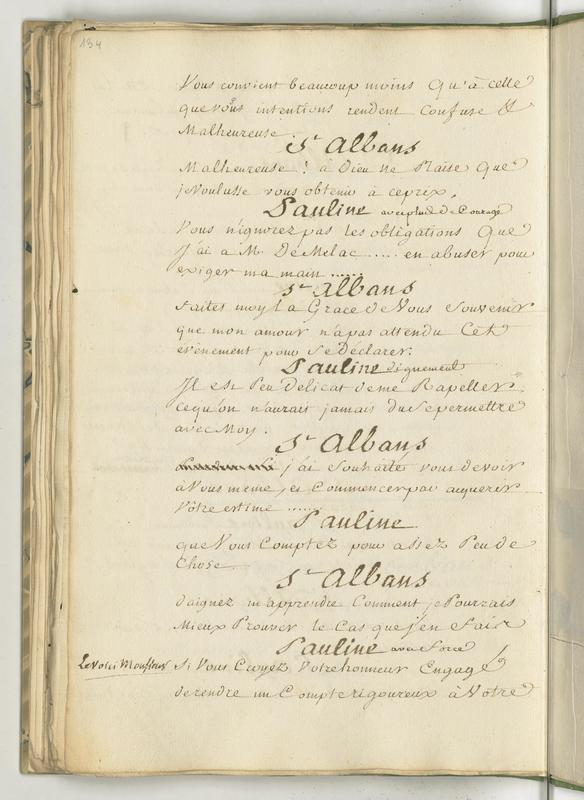 134
Vous convient beaucoup moins Qu'à cette
que vous intentions rendent Confuse &
Malheureuse.
St Albans
Malheureuse ! a Dieu ne Plaise Que
je Voulusse vous obtenir à ce prix.
Pauline avec plus de Courage
Vous n'ignorez pas les obligations Que
J'ai a Mr. De Melac ..... en abuser pour
exiger ma main ......
St Albans
faites moy La Grace de Vous Souvenir
que mon amour n'a pas attendu Cet
évènement pour Se Déclarer.
Pauline dignement
Il est Peu Délicat de me Rapeller
ce qu'on n'aurait jamais du Se permettre
avec Moy.
St Albans
j'ai Souhaité vous devoir
à Vous meme, et Commencer par acquerir
Vôtre estime ......
Pauline
que Vous Comptez pour assez Peu de
Chose
St Albans
daignez m'apprendre Comment je Pourrais
Mieux Prouver le Cas que j'en fais
Pauline avec force
Le voici Monsieur Si Vous Croyez Votre honneur Engagé
de rendre un Compte rigoureux à Votre